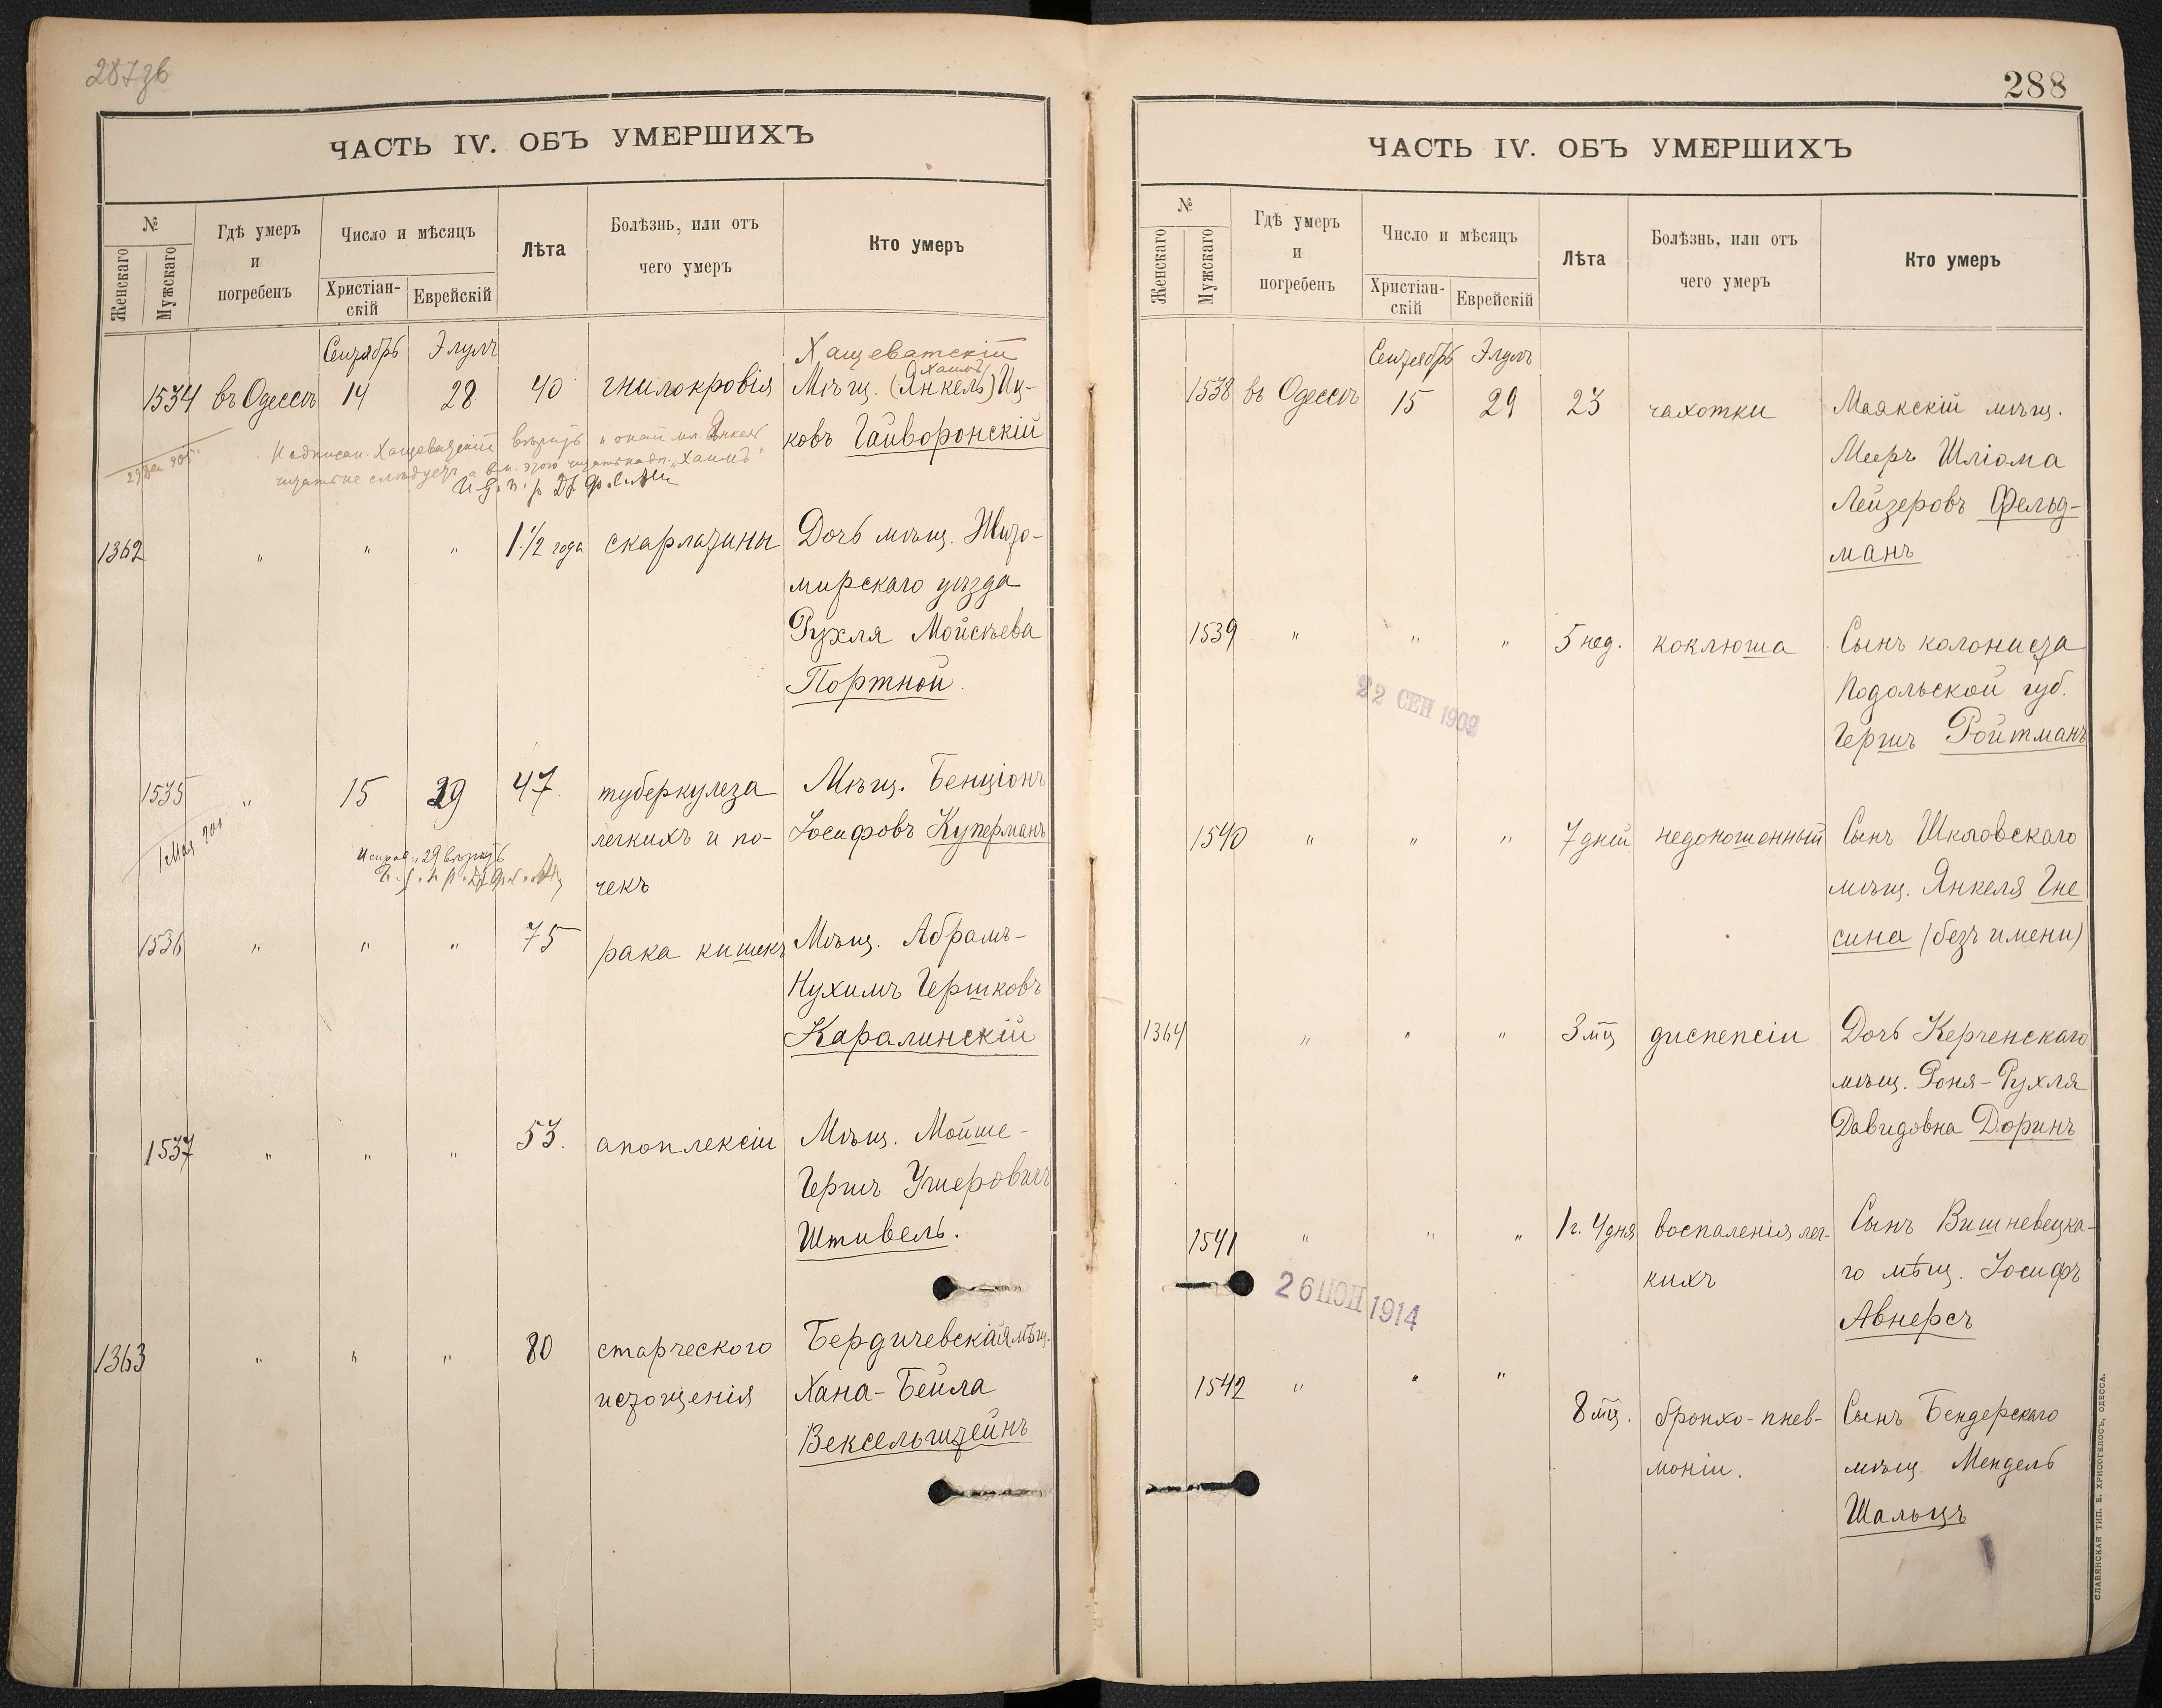 287зв
ЧАСТЬ IV. ОБЪ УМЕРШИХЪ
№
Женскаго
Мужскаго
Гдѣ умеръ
и
погребенъ
Число и мѣсяцъ
Христіан-
скій
Еврейскій
Лѣта
Болѣзнь, или отъ
чего умеръ
Кто умеръ
Сентябрь Элулъ
Хащеватскій
Хаимъ
1534 въ Одессѣ 14 28 40 гнилокровія Мѣщ. (Янкель) Иц-
ковъ Гайворонскій
29 Дек 905
Надписан. Хащеватскій вѣрить
читать не слѣдуетъ, а вм. этого читать надп. "Хаимъ"
1362 " " " 1 1/2 года скарлатины Дочь мѣщ. Жито-
мирскаго уѣзда
Рухля Мойсѣева
Портной
1535 " 15 29 47 туберкулеза Мѣщ. Бенціонъ
легкихъ и по- Іосифовъ Куперманъ
чекъ
1 Мая
Исправ. 29 вѣрить
1536 " " " 75 рака кишекъ Мѣщ. Абрамъ-
Нухимъ Гершковъ
Каралинскій
1537 " " " 53. апоплексіи Мѣщ. Мойше-
Гершъ Ушеровичъ
Штивель.
1363 " " " 80 старческого Бердичевская мѣщ.
истощенія Хана-Бейла
Вексельштейнъ
288
ЧАСТЬ IV. ОБЪ УМЕРШИХЪ
№
Женскаго
Мужскаго
Гдѣ умеръ
и
погребенъ
Число и мѣсяцъ
Христіан-
скій
Еврейскій
Лѣта
Болѣзнь, или отъ
чего умеръ
Кто умеръ
Сентябрь Элулъ
1538 въ Одессѣ 15 29 23 чахотки Маякскій мѣщ.
Мееръ Шліома
Лейзеровъ Фельд-
манъ
1539 " " " 5 нед. коклюша Сынъ колониста
Подольской губ.
Гершъ Ройтманъ
22 СЕН 1909
1540 " " " 7 дней недоношенный Сынъ Шкловскаго
мѣщ. Янкеля Гне
сина (безъ имени)
1364 " " " 3 мц диспепсіи Дочь Керченскаго
мѣщ. Роня-Рухля
Давидовна Доринъ
1541 " " " 1 г. 4 дня воспаленія лег- Сынъ Вишневецка-
кихъ го мѣщ. Іосифъ
Авнерсъ
26 ІЮН 1914
1542 " " " 8 мц. бронхо-пнев- Сынъ Бендерскаго
моніи. мѣщ. Мендель
Шальцъ
СЛАВЯНСКАЯ ТИП. Е. ХРИСОГЕЛОСЪ, ОДЕССА.